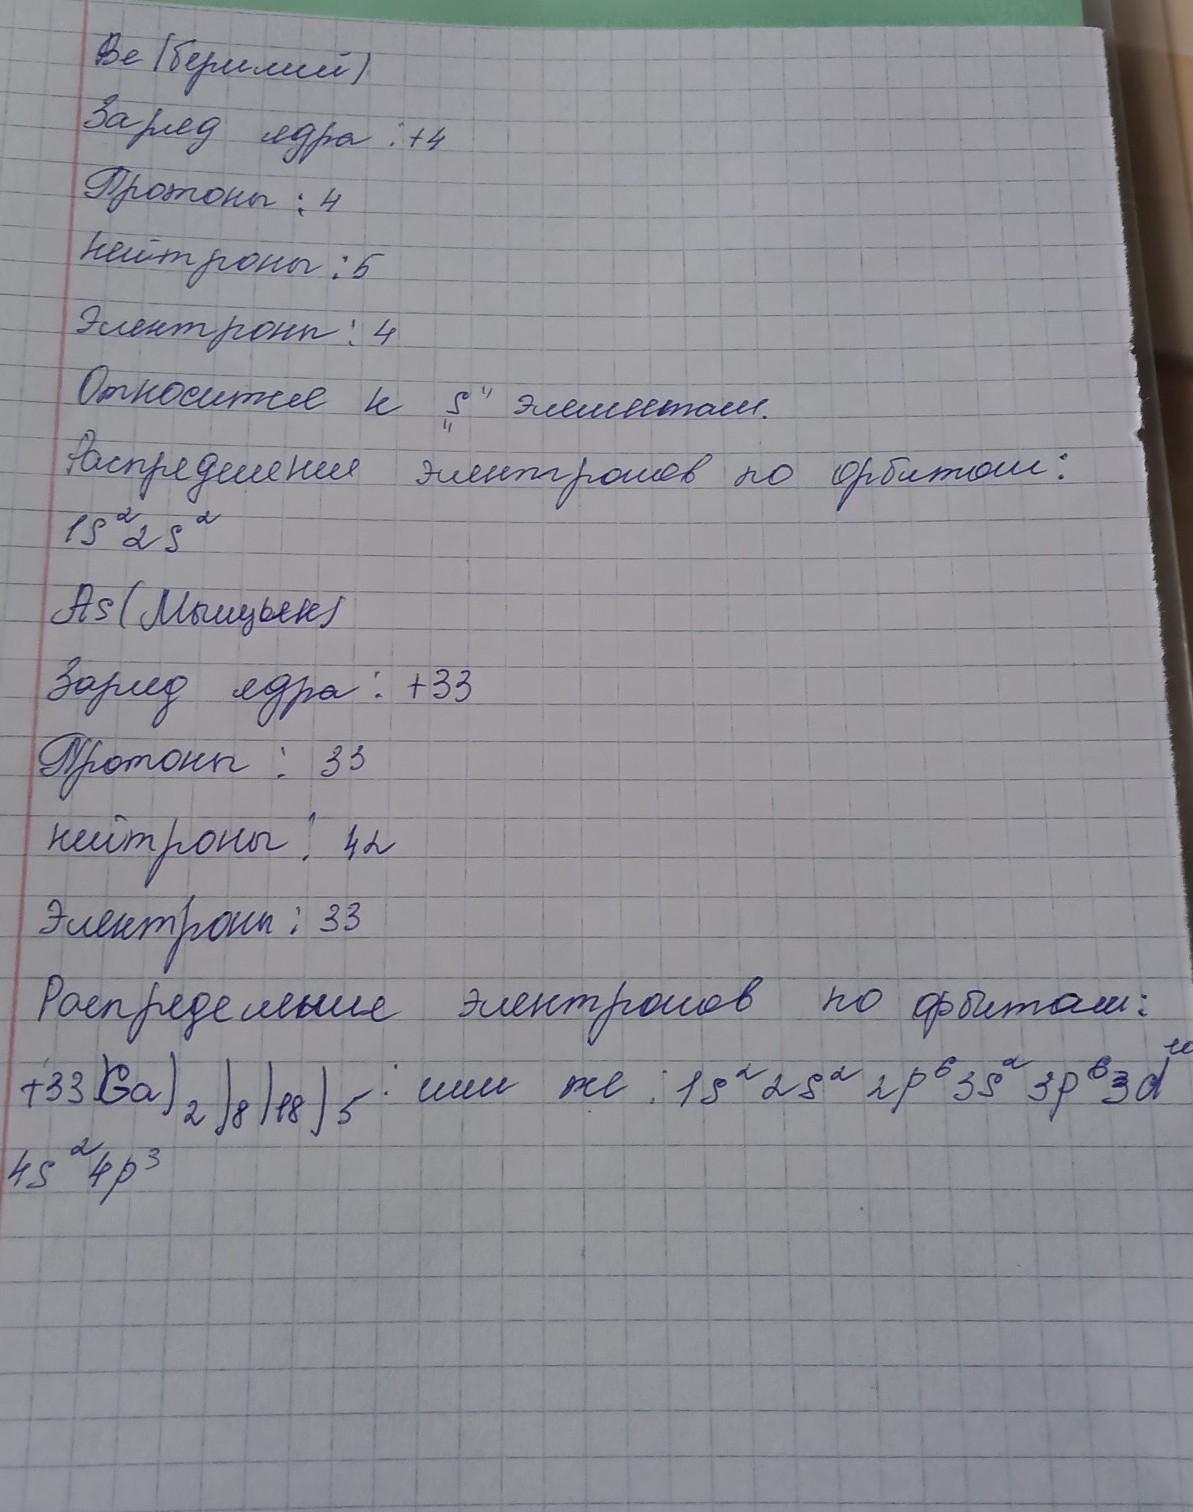 Be (берилий)
Заряд ядра : +4
Протоны : 4
нейтроны : 5
Электроны : 4
Относится к "s" элементам.
Распределение электронов по орбитам:
1s² 2s²
As (Мышьяк)
Заряд ядра : +33
Протоны : 33
нейтроны : 42
Электроны : 33
Распределение электронов по орбитам:
+33)Ga)2)8)18)5 : или же : 1s² 2s² 2p⁶ 3s² 3p⁶ 3d¹⁰
4s² 4p³